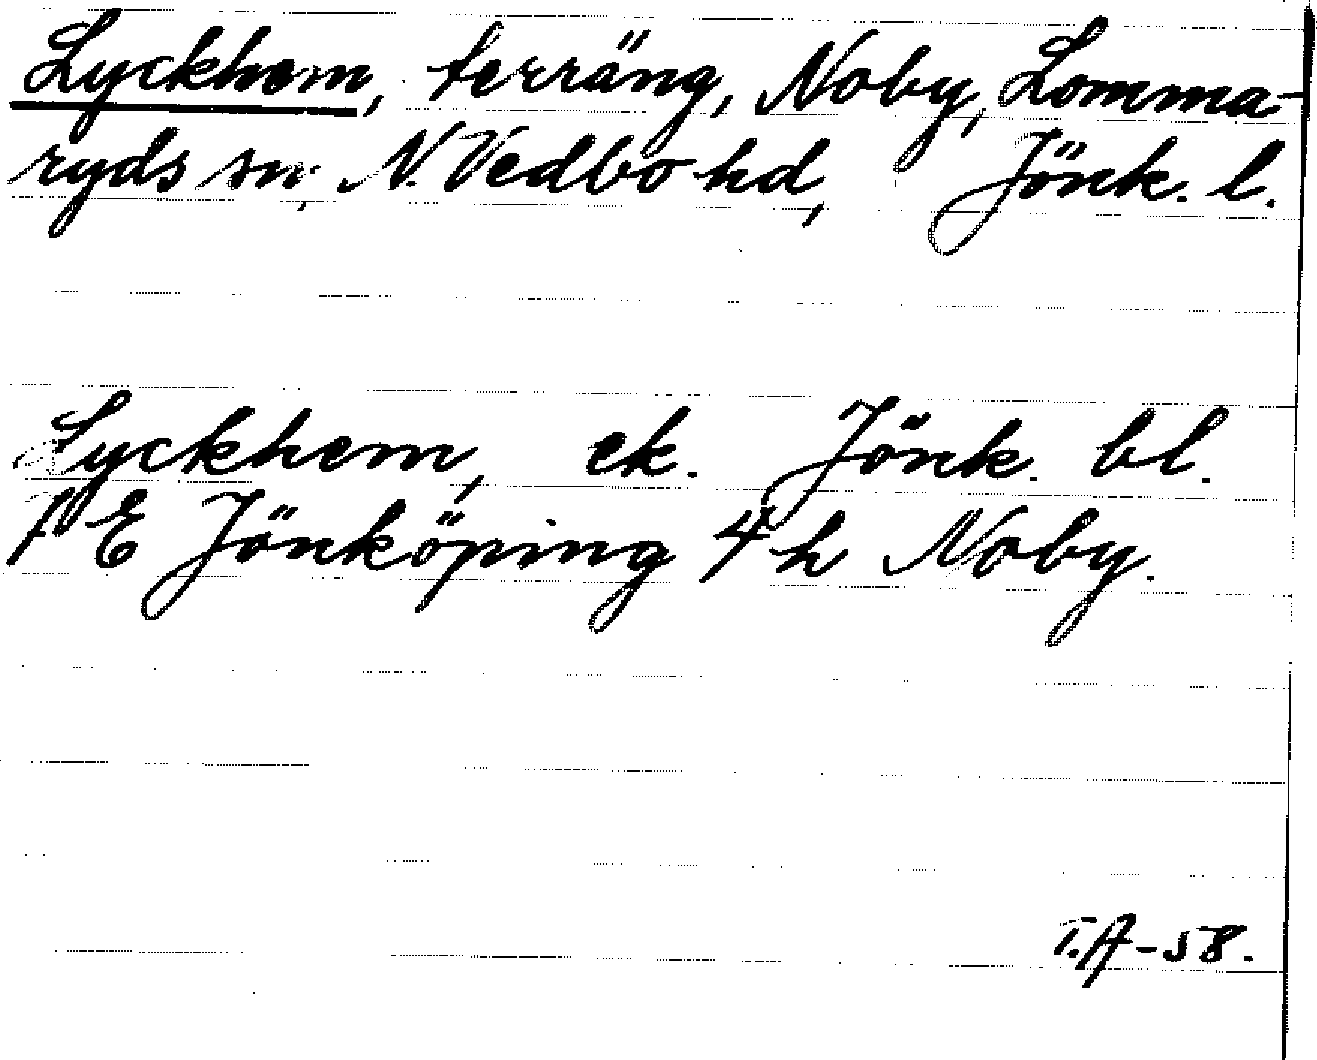 Lyckhem, terräng, Noby, Lomma-
ryds sn, N. Vedbo hd, Jönk. l.
Lyckhem, ek. Jönk. bl.
7 E Jönköping 4 h Noby.
T.A-58.